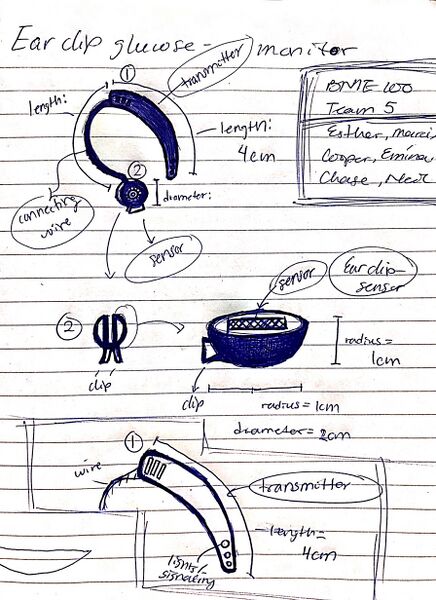 Ear clip glucose - monitor
BME 100
Team 5
Esther,
Cooper,
Chase,
①
transmitter
length:
length:
4cm
②
diameter:
connecting
wire
sensor
sensor
Ear clip-
sensor
②
clip
radius =
1cm
clip
radius = 1cm
diameter = 2cm
①
wire
transmitter
length =
4cm
lights/
signaling